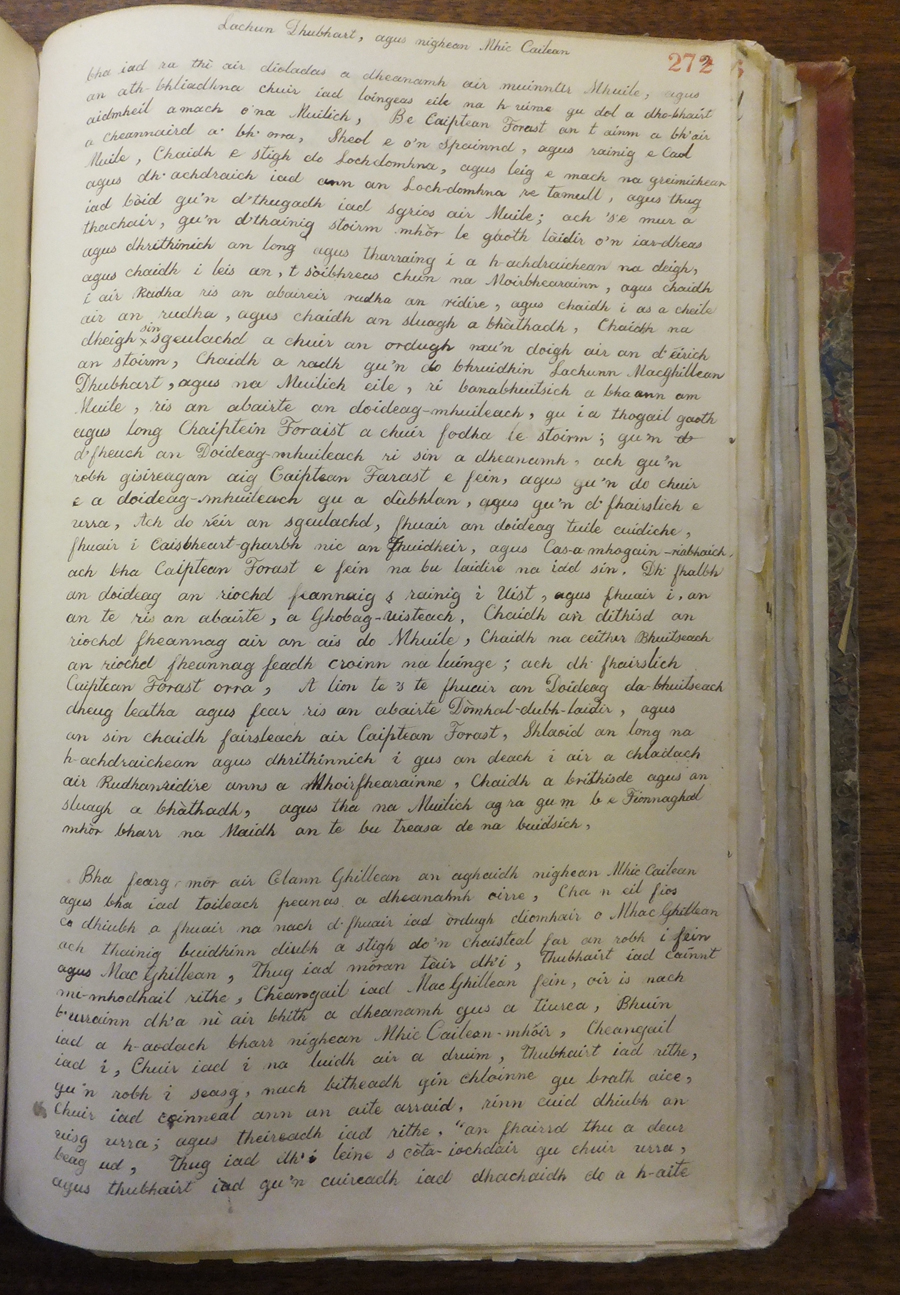 Lachun Dhubhart, agus nighean Mhic Cailean
272
bha iad ra thi air dioladas a dheanamh air muinntir Mhuile, agus
an ath-bhliadhna chuir iad loingeas eile na h-uime gu dol a dho-bhairt
aidmheil amach o'na Muilich, Be Caiptean Forast an t ainm a bh'air
a cheannaird a' bh' orra, Sheol e o'n Spainnd, agus rainig e Caol
Muile, Chaidh e stigh do Lochdomhna, agus leig e mach na greimichean
agus dh'achdraich iad ann an Loch-domhna re tamull, agus thug
iad bòid gu'n d'thugadh iad sgrios air Muile; ach 'se mur a
thachair, gu'n d'thainig stoirm mhòr le gaoth làidir o'n iar-dheas
agus dhrithinich an long agus tharraing i a h-achdraichean na deigh,
agus chaidh i leis an, t soibhreas chun na Moirbhearainn, agus chaidh
i air Rudha ris an abaireir rudha an ridire, agus chaidh i as a cheile
air an rudha, agus chaidh an sluagh a bhàthadh, Chaidh na
dheigh sin sgeulachd a chuir an ordugh mu'n doigh air an d'éirich
an stoirm, Chaidh a radh gu'n do bhruidhin Lachunn MacGhillean
Dhubhart, agus na Muilich eile, ri banabhuitsich a bha ann am
Muile, ris an abairte an doideag-mhuileach, gu i a thogail gaoth
agus long Chaiptein Foraist a chuir fodha le stoirm; gu'n d
d'fheuch an Doideag-mhuileach ri sin a dheanamh, ach gu'n
robh gisireagan aig Caiptean Farast e fein, agus gu'n do chuir
e a doideag-mhuileach gu a dùbhlan, agus gu'n d'fhairslich e
urra, Ach do réir an sgeulachd, fhuair an doideag tuile cuidiche,
fhuair i Caisbheart-gharbh nic an fhuidheir, agus Cas-a mhogain-riabhaich,
ach bha Caiptean Forast e fein na bu laidire na iad sin. Dh' fhalbh
an doideag an riochd feannaig s rainig i Uist, agus fhuair i, an
an te ris an abairte, a Ghobag-uisteach, Chaidh an dithisd an
riochd fheannag air an ais do Mhuile, Chaidh na ceither Bhuitseach
an riochd fheannag feadh croinn na luinge; ach dh' fhairslich
Caiptean Forast orra, A lion te 's te fhuair an Doideag da-bhuitseach
dheug leatha agus fear ris an abairte Dòmhal-dubh-laidir, agus
an sin chaidh fairsleach air Caiptean Forast, Shlaoid an long na
h-achdraichean agus dhrithinnich i gus an deach i air a chladach
air Rudhanridire anns a Mhoirfhearainne, Chaidh a brithisde agus an
sluagh a bhàthadh, agus tha na Muilich ag ra gu m b e Fionnaghal
mhòr bharr na Maidh an te bu treasa de na buidsich,
Bha fearg mòr air Clann Ghillean an aghaidh nighean Mhic Cailean
agus bha iad toileach peanas a dheanamh oirre, Cha n eil fios
co dhiubh a fhuair na nach d-fhuair iad òrdugh diomhair o Mhac Ghillean
ach thainig buidhinn diubh a stigh do'n chaisteal far an robh i fein
agus MacGhillean, Thug iad mòran tàir dh'i, Thubhairt iad cainnt
mi-mhodhail rithe, Cheangail iad MacGhillean fein, oir is nach
b'urrainn dh'a ni air bhith a dheanamh gus a tiurea, Bhuin
iad a h-aodach bharr nighean Mhic Cailean-mhòir, Cheangail
iad i, Chuir iad i na luidh air a druim, Thubhairt iad rithe,
gu'n robh i seasg, nach bitheadh gin chloinne gu brath aice,
Chuir iad coinneal ann an aite arraid, rinn cuid dhiubh an
uisg urra; agus theireadh iad rithe, "an fhairrd thu a deur
beag ud, Thug iad dh'i leine s còta-iochdair gu chuir urra,
agus thubhairt iad gu'n cuireadh iad dhachaidh do a h-aite